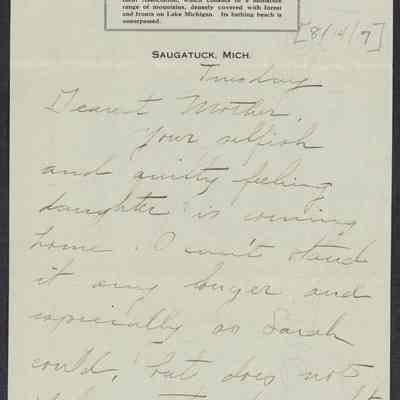 range of mountains, densely covered with forest
and fronts on Lake Michigan. Its bathing beach is
unsurpassed.
[8/14/9]
SAUGATUCK, MICH.
Tuesday
Dearest Mother,
Your selfish
and guilty feeling
daughter is coming
home. I can't stand
it any longer and
especially as Sarah
could, but does not